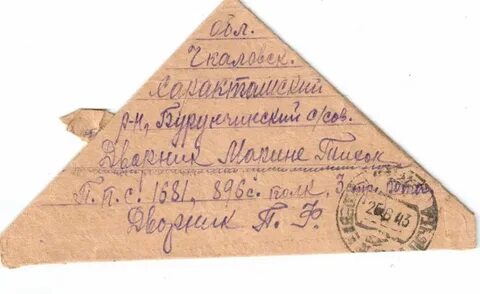 Обл.
Чкаловск.
Сакактамский
р-н, Бурунчинский с/сов.
Дворник Марине Тисок
П.П.С. 1681, 896 с. полк, 3
Дворник П. Ф.
25 6 43